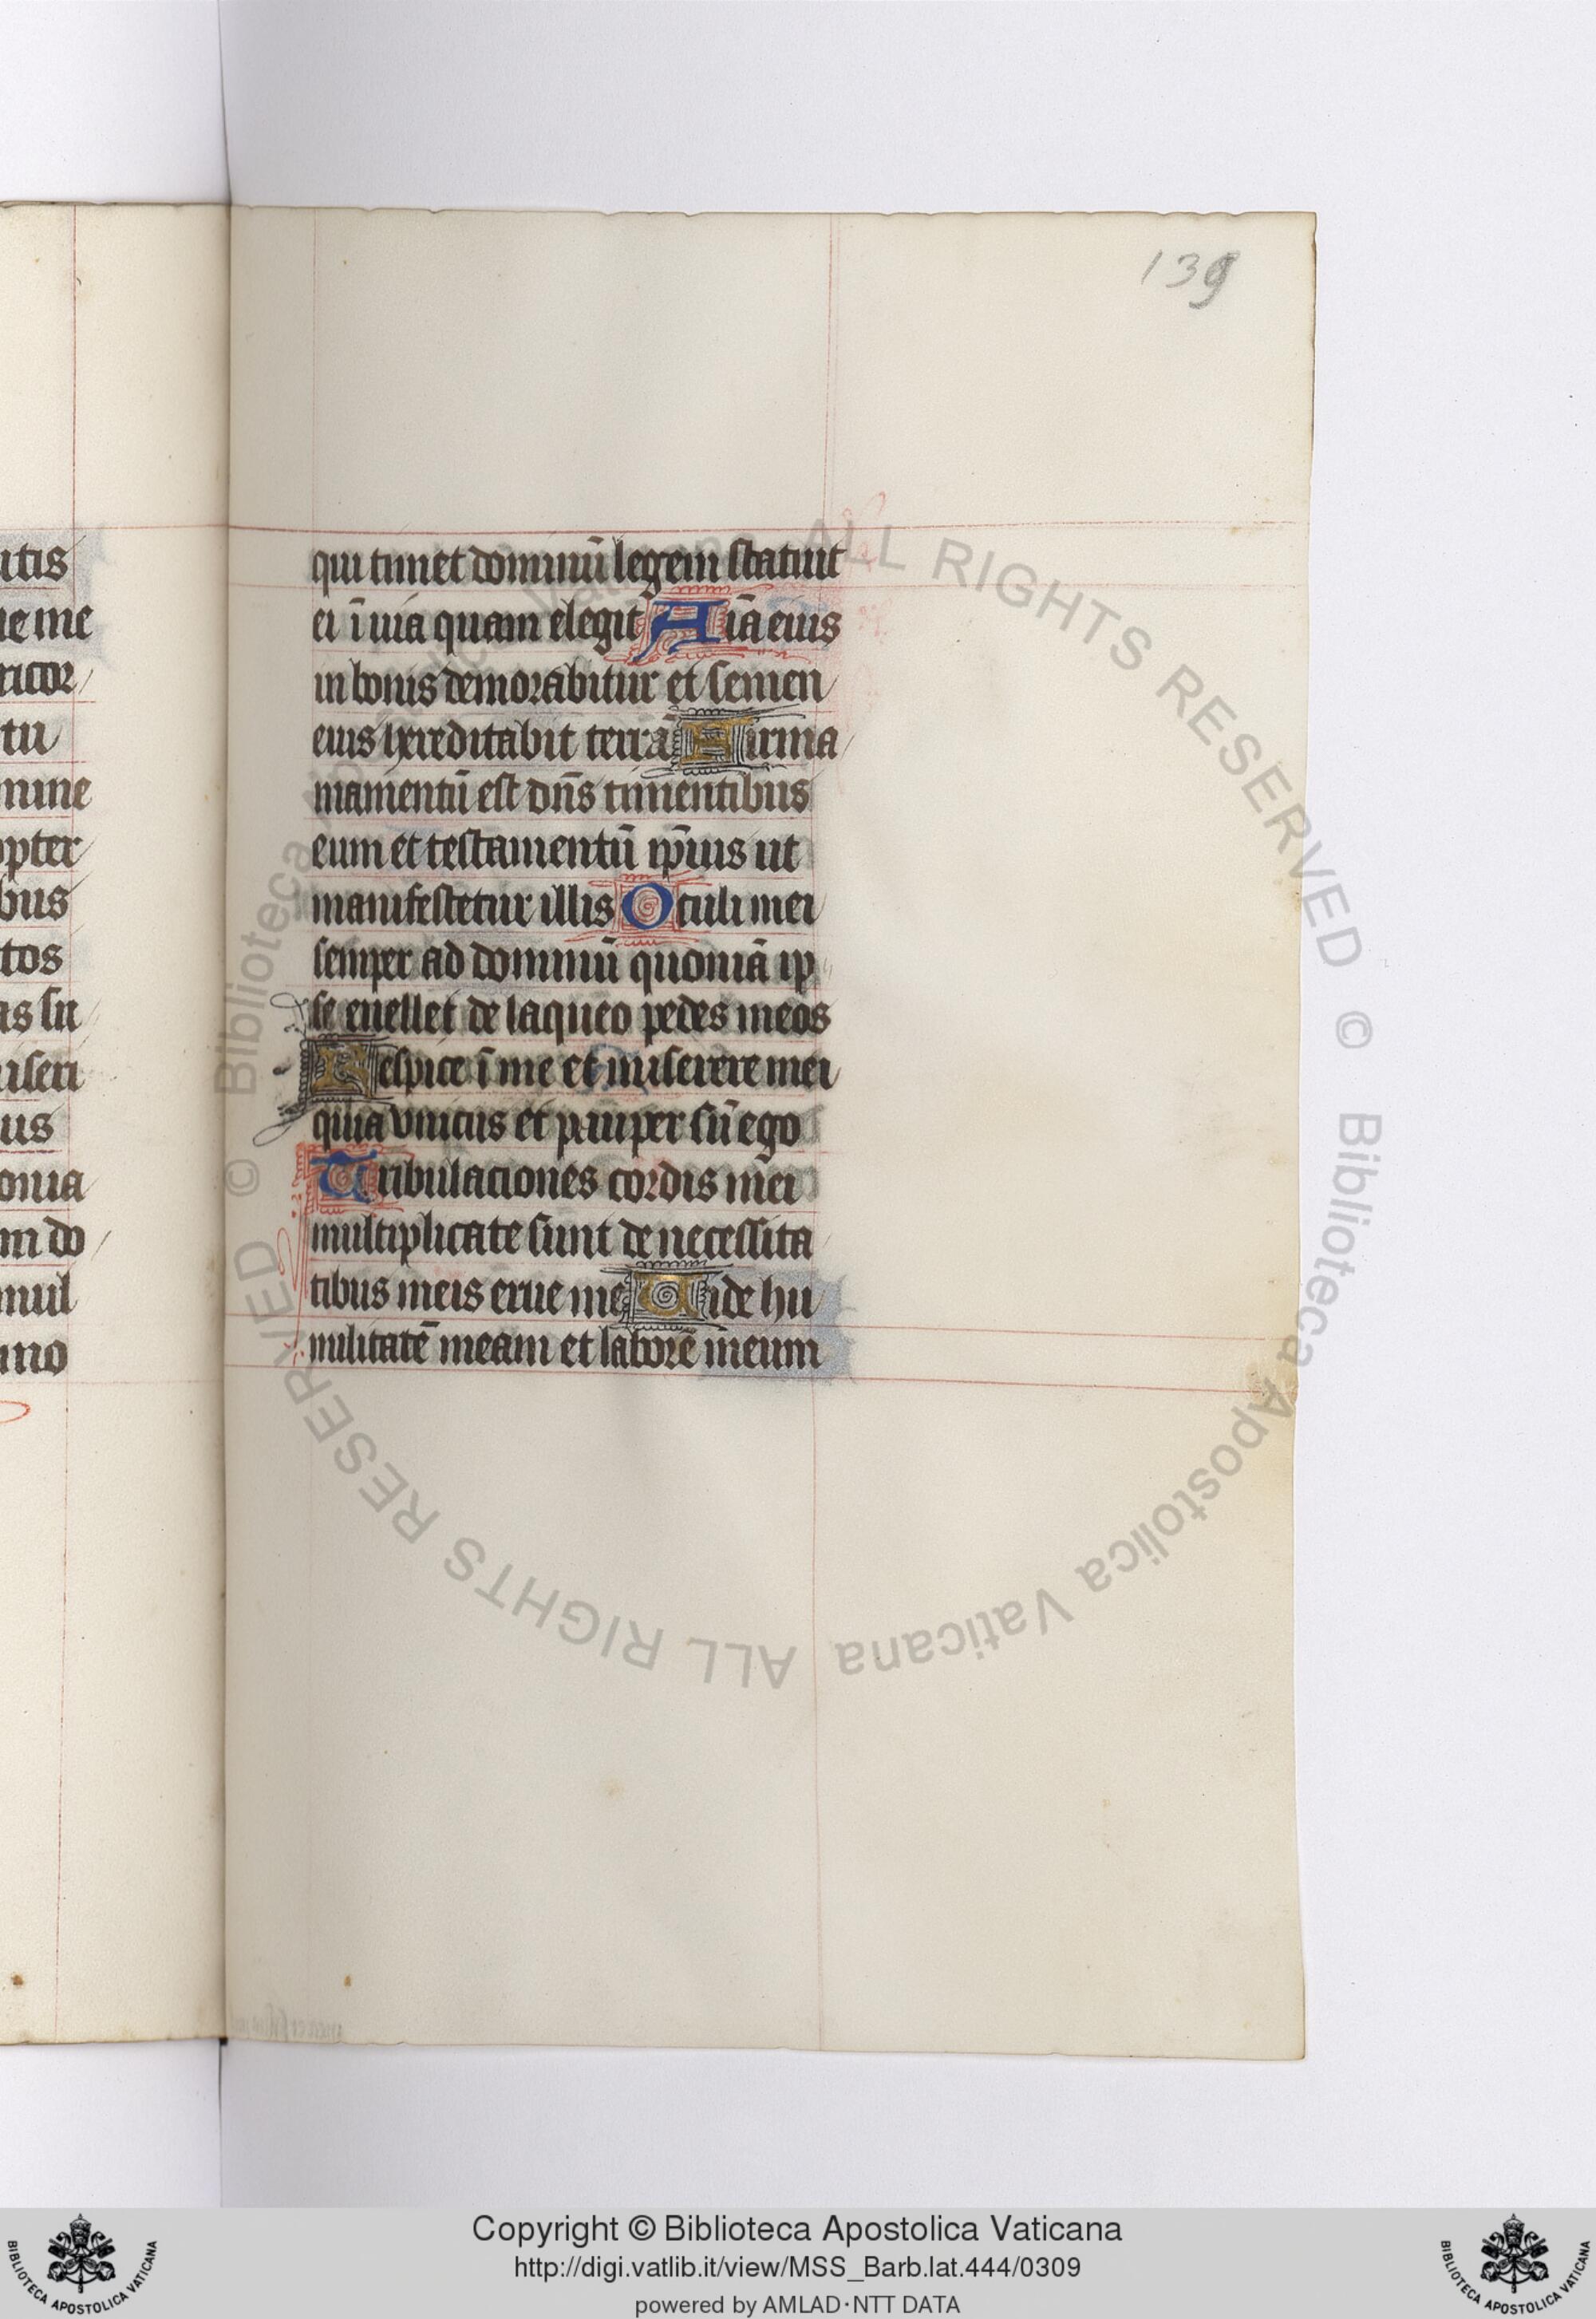 139
itis
ie me
ricor
tu
mine
opter
bus
tos
as su
iseri
us
onia
m do
mul
ino
qui timet dominū legem statuit
ei ī uia quam elegit Aīa eius
in bonis demorabitur et semen
eius hereditabit terrā Firma
mamentū est dn̄s timentibus
eum et testamentū ip̄ius ut
manifestetur illis Oculi mei
semper ad dominū quoniā ip
se euellet de laqueo pedes meos
Respice ī me et miserere mei
quia vnicus et pauper sū ego
Tribulaciones cordis mei
multiplicate sunt de necessita
tibus meis erue me Uide hu
militatē meam et laborē meum
© Biblioteca Apostolica Vaticana ALL RIGHTS RESERVED © Biblioteca Apostolica Vaticana ALL RIGHTS RESERVED
Copyright © Biblioteca Apostolica Vaticana
http://digi.vatlib.it/view/MSS_Barb.lat.444/0309
powered by AMLAD·NTT DATA
BIBLIOTECA APOSTOLICA VATICANA
BIBLIOTECA APOSTOLICA VATICANA